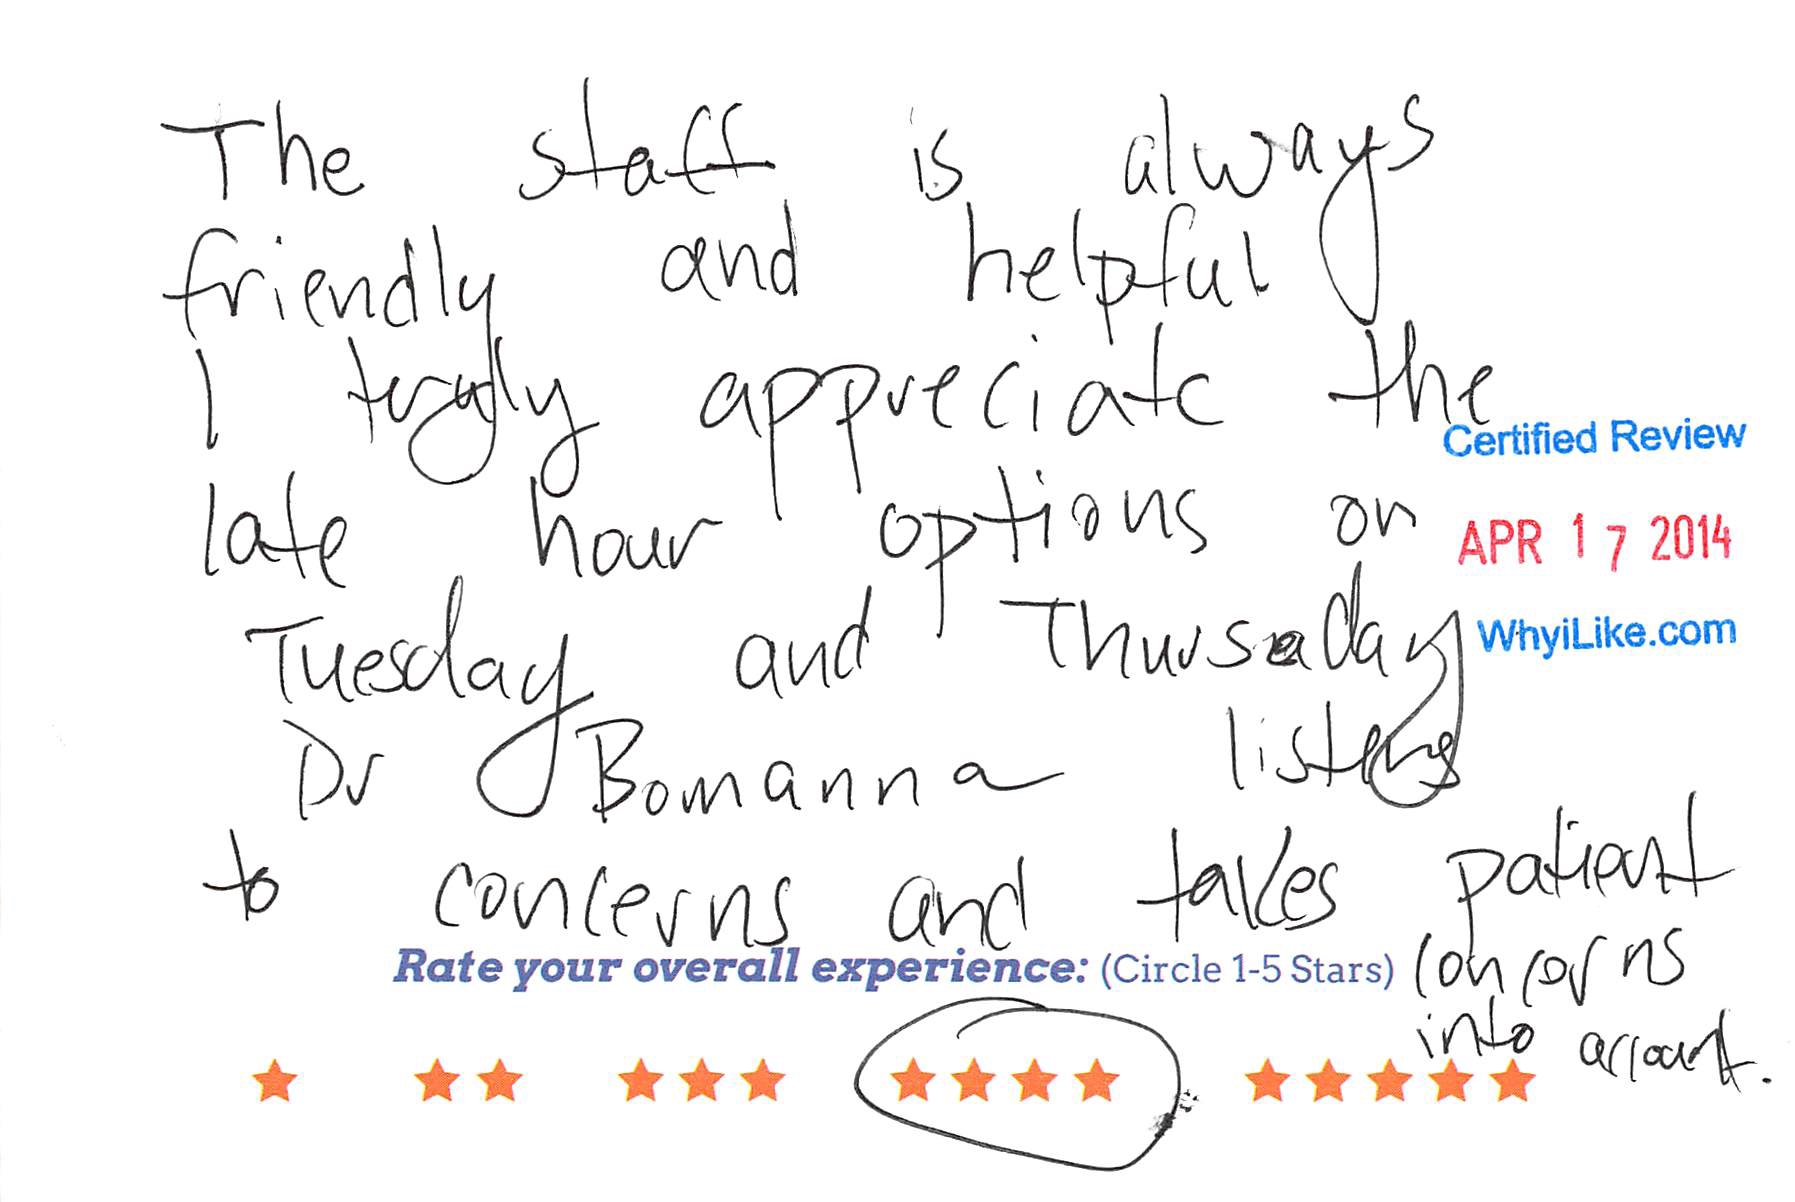 The staff is always
friendly and helpful
I truly appreciate the
Certified Review
late hour options on
APR 17 2014
Tuesday and Thursday
WhyiLike.com
Dr Bomanna listens
to concerns and takes patient
concerns
into account.
Rate your overall experience: (Circle 1-5 Stars)